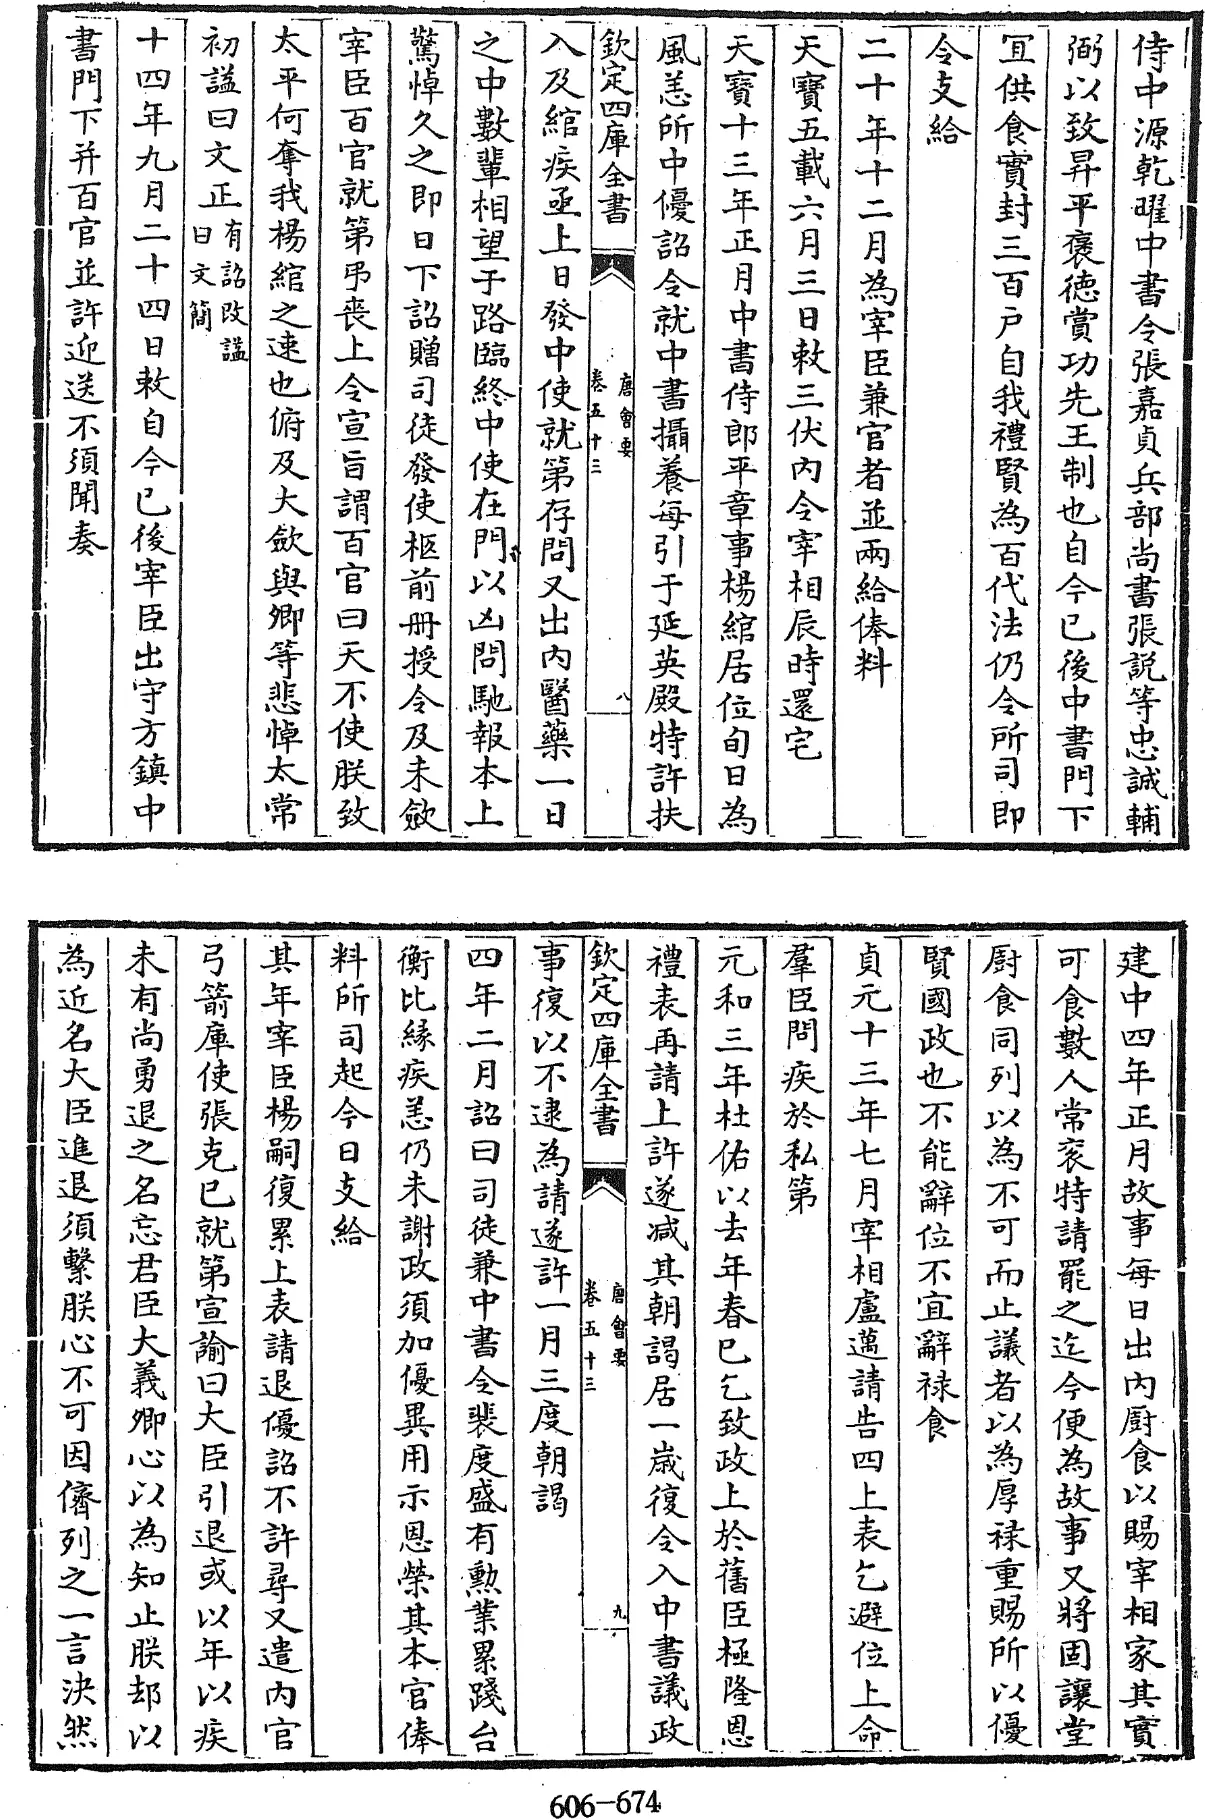 侍中源乾曜中書令張嘉貞兵部尚書張説等忠誠輔
弼以致昇平褒德賞功先王制也自今已後中書門下
宜供食實封三百户自我禮賢為百代法仍令所司即
令支給
二十年十二月為宰臣兼官者並兩給俸料
天寶五載六月三日敕三伏内令宰相辰時還宅
天寶十三年正月中書侍郎平章事楊綰居位旬日為
風恙所中優詔令就中書攝養每引于延英殿特許扶
欽定四庫全書
唐會要
卷五十三
八
入及綰疾亟上日發中使就第存問又出内醫藥一日
之中數輩相望于路臨終中使在門以凶問馳報本上
驚悼久之即日下詔贈司徒發使柩前冊授令及未斂
宰臣百官就第弔喪上令宣旨謂百官曰天不使朕致
太平何奪我楊綰之速也俯及大斂與卿等悲悼太常
初諡曰文正有詔改諡曰文簡
十四年九月二十四日敕自今已後宰臣出守方鎮中
書門下并百官並許迎送不須聞奏
建中四年正月故事每日出内厨食以賜宰相家其實
可食數人常衮特請罷之迄今便為故事又將固讓堂
厨食同列以為不可而止議者以為厚禄重賜所以優
賢國政也不能辭位不宜辭禄食
貞元十三年七月宰相盧邁請告四上表乞避位上命
羣臣問疾於私第
元和三年杜佑以去年春已乞致政上於舊臣極隆恩
禮表再請上許遂减其朝謁居一歲復令入中書議政
欽定四庫全書
唐會要
卷五十三
九
事復以不逮為請遂許一月三度朝謁
四年二月詔曰司徒兼中書令裴度盛有勲業累踐台
衡比緣疾恙仍未謝政須加優異用示恩榮其本官俸
料所司起今日支給
其年宰臣楊嗣復累上表請退優詔不許尋又遣内官
弓箭庫使張克已就第宣諭曰大臣引退或以年以疾
未有尚勇退之名忘君臣大義卿心以為知止朕却以
為近名大臣進退須繫朕心不可因儕列之一言決然
606-674